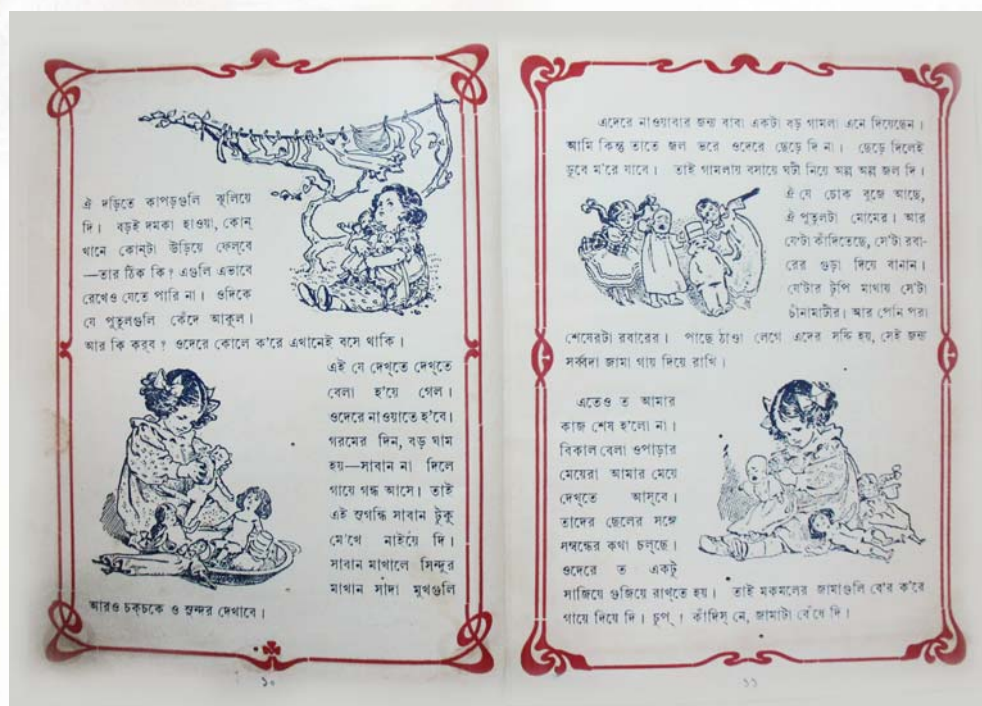 ঐ দড়িতে কাপড়গুলি ঝুলিয়ে
দি। বড়ই দমকা হাওয়া, কোন্
খানে কোন্‌টা উড়িয়ে ফেল্‌বে
—তার ঠিক কি? এগুলি এভাবে
রেখেও যেতে পারি না। ওদিকে
যে পুতুলগুলি কেঁদে আকুল।
আর কি করব? ওদেরে কোলে ক'রে এখানেই বসে থাকি।
এই যে দেখ্‌তে দেখ্‌তে
বেলা হ'য়ে গেল।
ওদেরে নাওয়াতে হ'বে।
গরমের দিন, বড় ঘাম
হয়—সাবান না দিলে
গায়ে গন্ধ আসে। তাই
এই সুগন্ধি সাবান টুকু
মে'খে নাইয়ে দি।
সাবান মাখালে সিন্দুর
মাখান সাদা মুখগুলি
আরও চক্‌চকে ও সুন্দর দেখাবে।
১০
এদেরে নাওয়াবার জন্য বাবা একটা বড় গামলা এনে দিয়েছেন।
আমি কিন্তু তাতে জল ভরে ওদেরে ছেড়ে দি না। ছেড়ে দিলেই
ডুবে ম'রে যাবে। তাই গামলায় বসায়ে ঘটী নিয়ে অল্প অল্প জল দি।
ঐ যে চোক বুজে আছে,
ঐ পুতুলটা মোমের। আর
যে'টা কাঁদিতেছে, সে'টা রবা-
রের গুড়া দিয়ে বানান।
যে'টার টুপি মাথায় সে'টা
চীনামাটীর। আর পেনি পরা
শেষেরটা রবারের। পাছে ঠাণ্ডা লেগে এদের সর্দ্দি হয়, সেই জন্য
সর্ব্বদা জামা গায় দিয়ে রাখি।
এতেও ত আমার
কাজ শেষ হ'লো না।
বিকাল বেলা ওপাড়ার
মেয়েরা আমার মেয়ে
দেখ্‌তে আস্‌বে।
তাদের ছেলের সঙ্গে
সম্বন্ধের কথা চল্‌ছে।
ওদেরে ত একটু
সাজিয়ে গুজিয়ে রাখ্‌তে হয়। তাই মকমলের জামাগুলি বে'র ক'রে
গায়ে দিয়ে দি। চুপ্! কাঁদিস্ নে, জামাটা বেঁধে দি।
১১